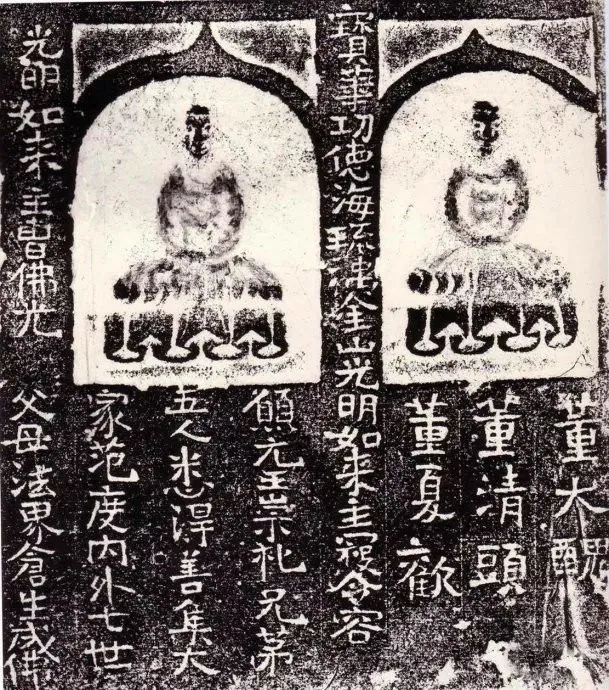 董大醜
董清頭
董夏歡
寶華功德海琉璃金山光明如来主寇令容
王崇礼兄弟
五人悉得善集大
家范度内外七世
光明如来主曹佛光
父母法界倉生成佛